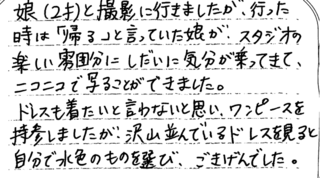 娘(2才)と撮影に行きましたが、行った
時は「帰る」と言っていた娘が、スタジオの
楽しい雰囲分にしだいに気分が乗ってきて、
ニコニコで写ることができました。
ドレスも着たいと言わないと思い、ワンピースを
持参しましたが、沢山並んでいるドレスを見ると
自分で水色のものを選び、ごきげんでした。